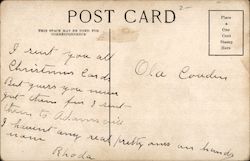 POST CARD
THIS SPACE MAY BE USED FOR
CORRESPONDENCE
Place
a
One
Cent
Stamp
Here
2-
I sent you all
Christmas Cards
But guess you never
got them for I sent
them to Adamsville
I havent any real pretty ones on hands
now
Rhoda
Ola